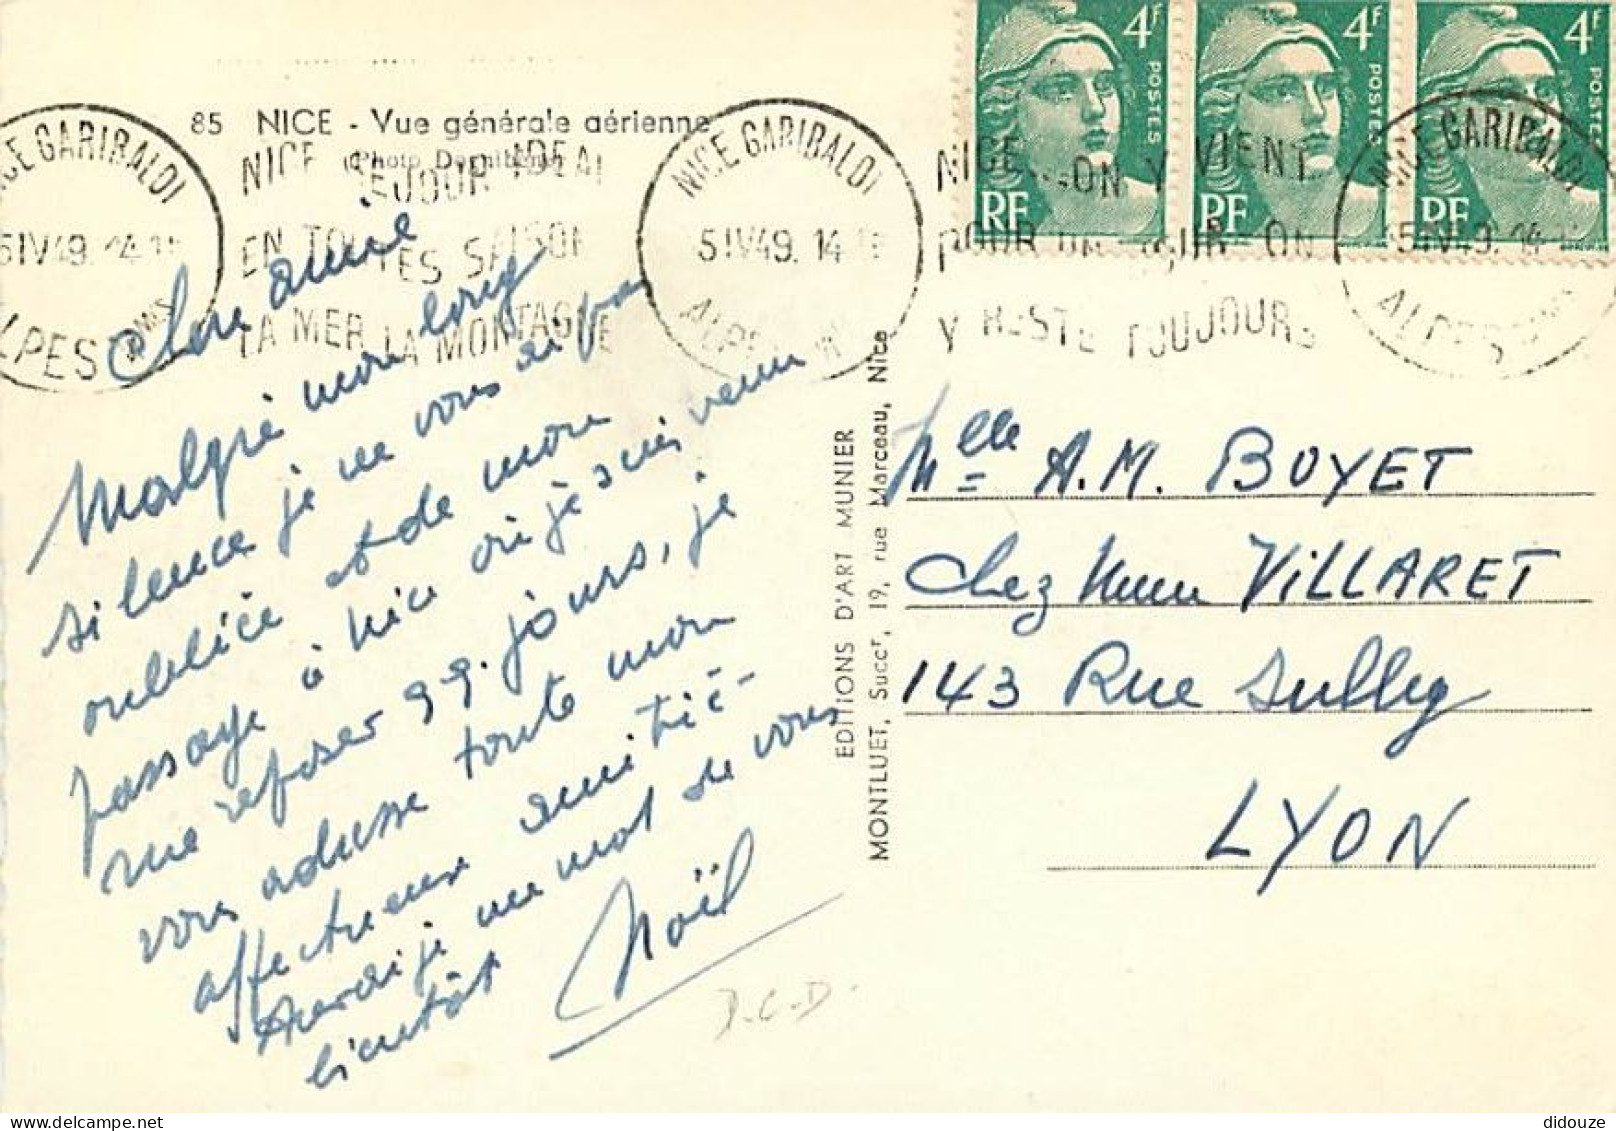 85 NICE - Vue générale aérienne
NICE GARIBALDI
5 IV 49. 14 15
ALPES MMES
NICE SEJOUR IDEAL
EN TOUTES SAISONS
LA MER LA MONTAGNE
NICE GARIBALDI
5 IV 49. 14 15
NICE... ON Y VIENT
POUR UN JOUR ON
Y RESTE TOUJOURS
NICE GARIBALDI
5 IV 49. 14
4F POSTES RF
4F POSTES RF
4F POSTES RF
Chère amie
Malgré mon long
silence je ne vous ai pas
oubliée et de mon
passage à Nice où je suis venu
me reposer 99. jours, je
vous adresse toute mon
affectueuse amitié -
Aurai je un mot de vous
bientôt
Noël
D.C.D.
EDITIONS D'ART MUNIER
MONTLUET, Succr, 19, rue Marceau, Nice
Mlle A.M. BOYET
Chez Mme VILLARET
143 Rue Sully
LYON
didouze